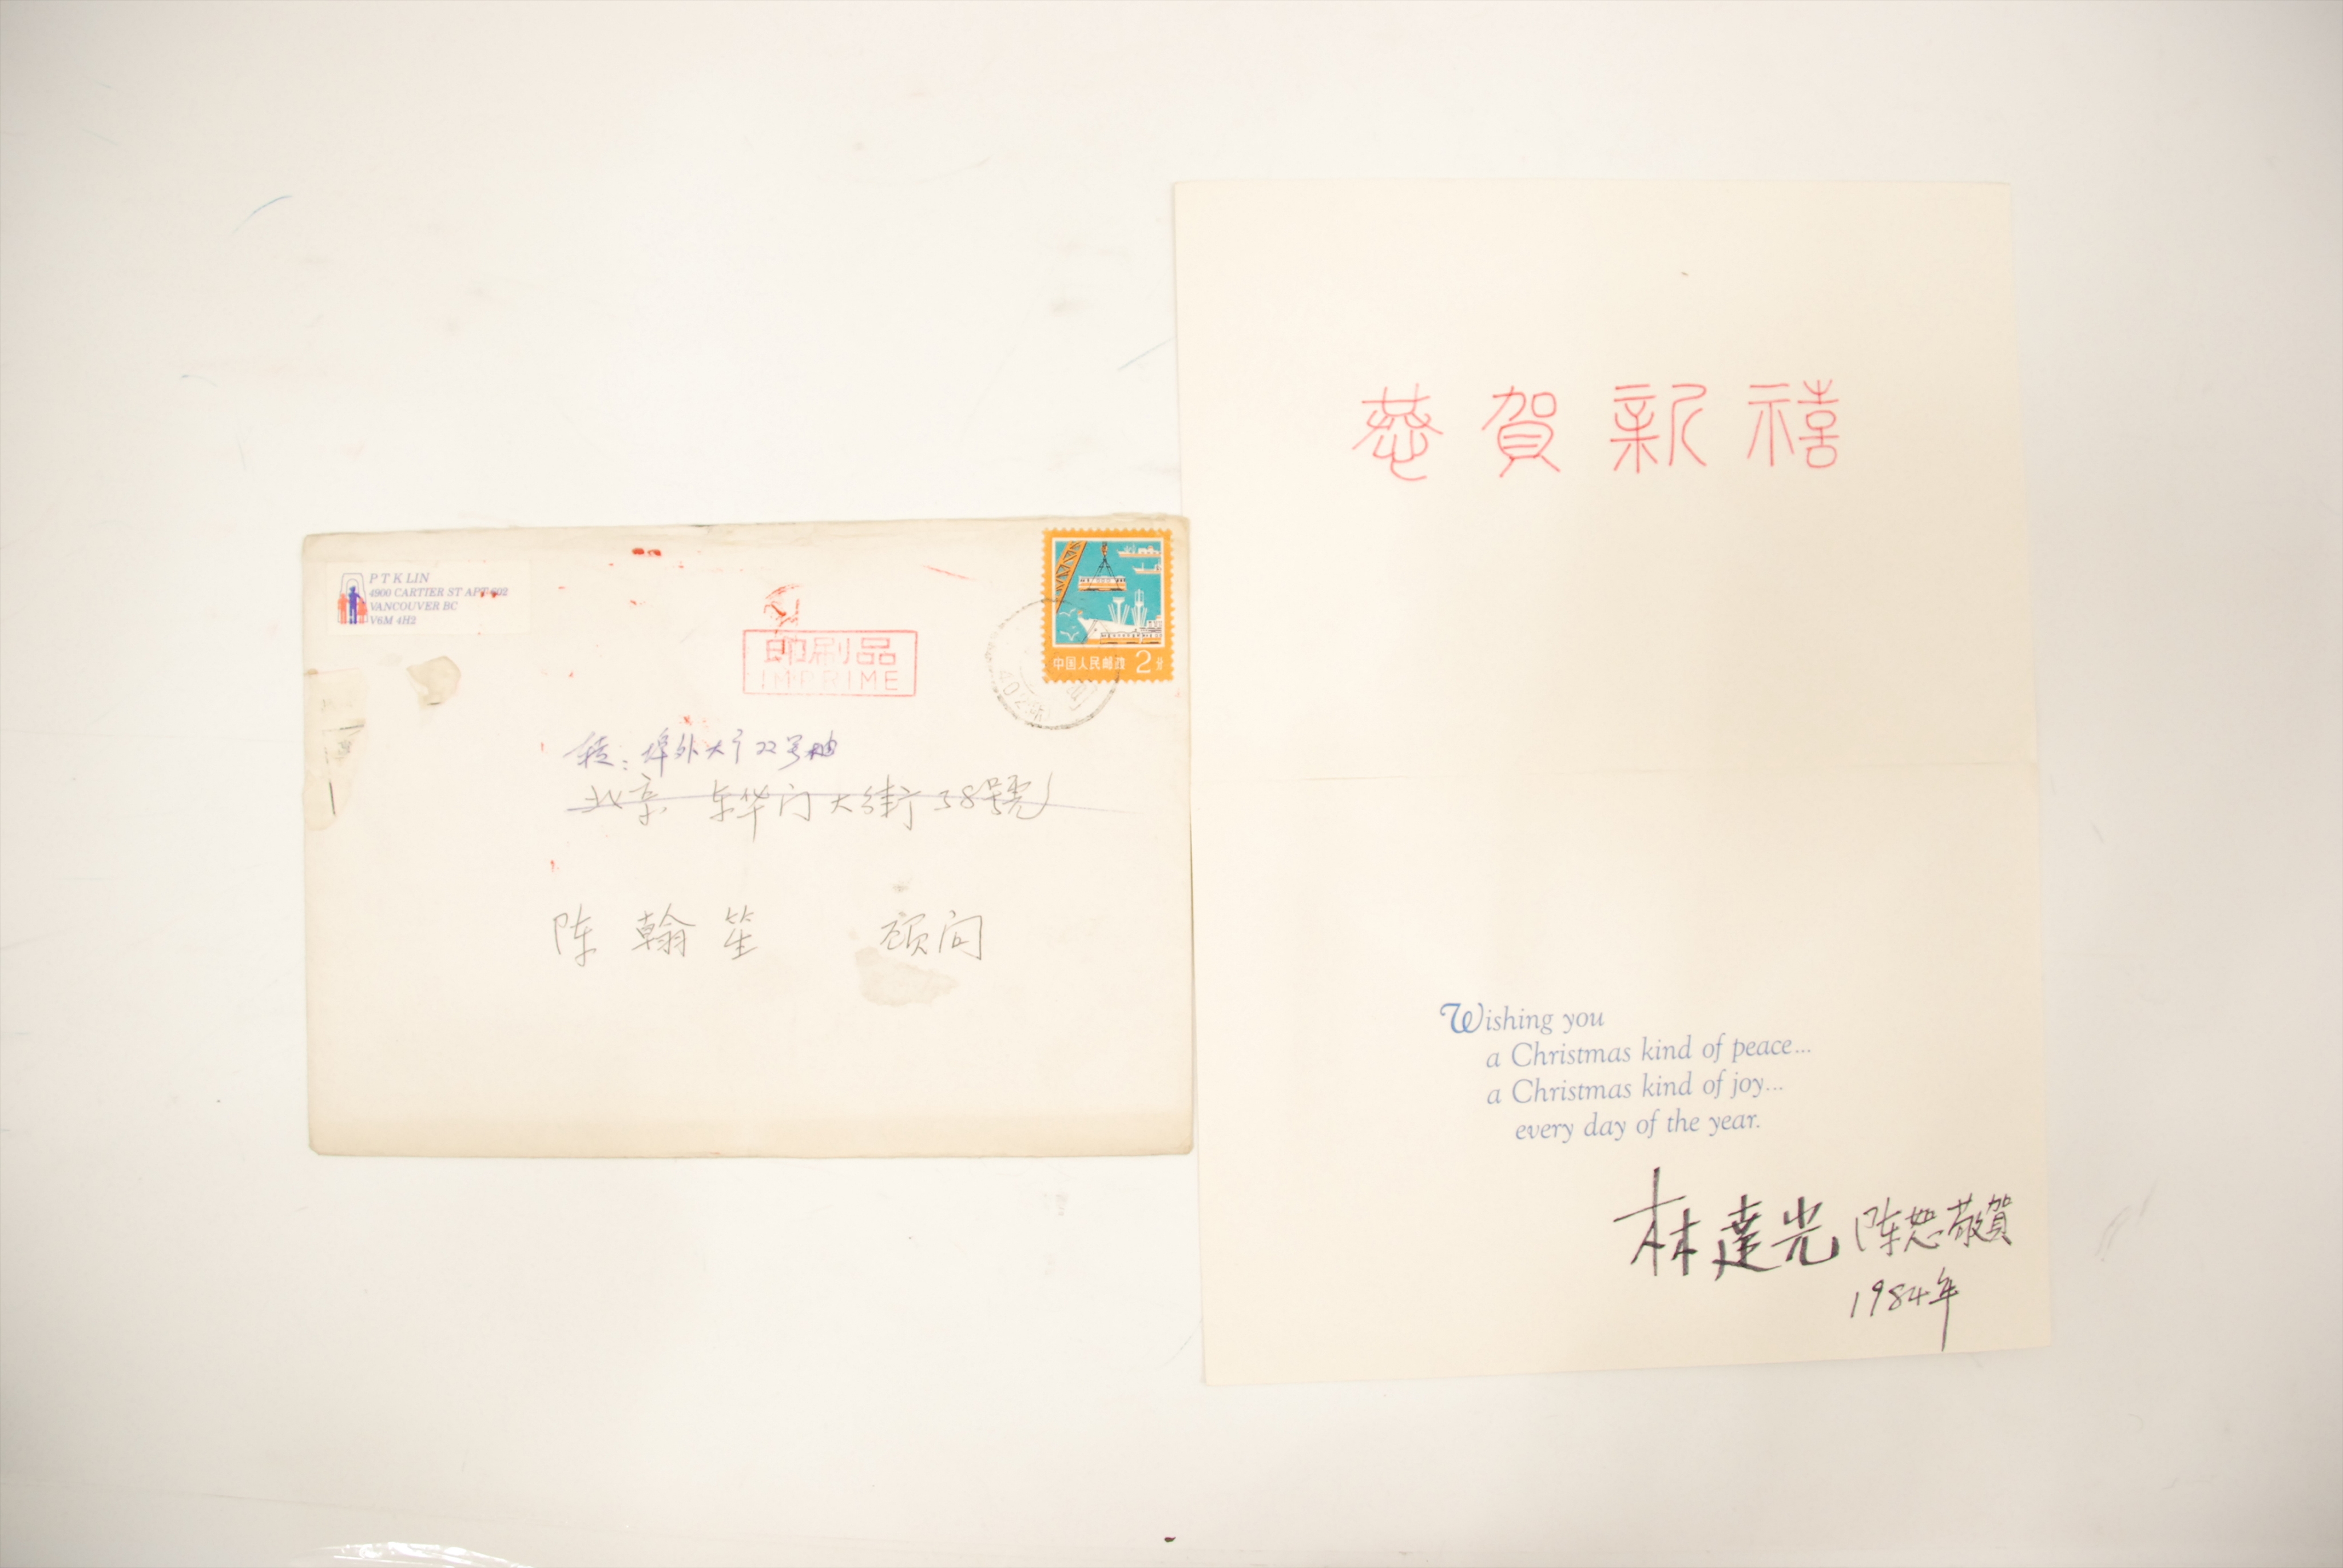 P T K LIN
4900 CARTIER ST APT 602
VANCOUVER BC
V6M 4H2
印刷品
IMPRIME
中国人民邮政 2分
转：埠外大 22号
北京 东华门大街38号
陈翰笙 顾问
恭賀新禧
Wishing you
a Christmas kind of peace...
a Christmas kind of joy...
every day of the year.
林達光 陈恕敬賀
1984年